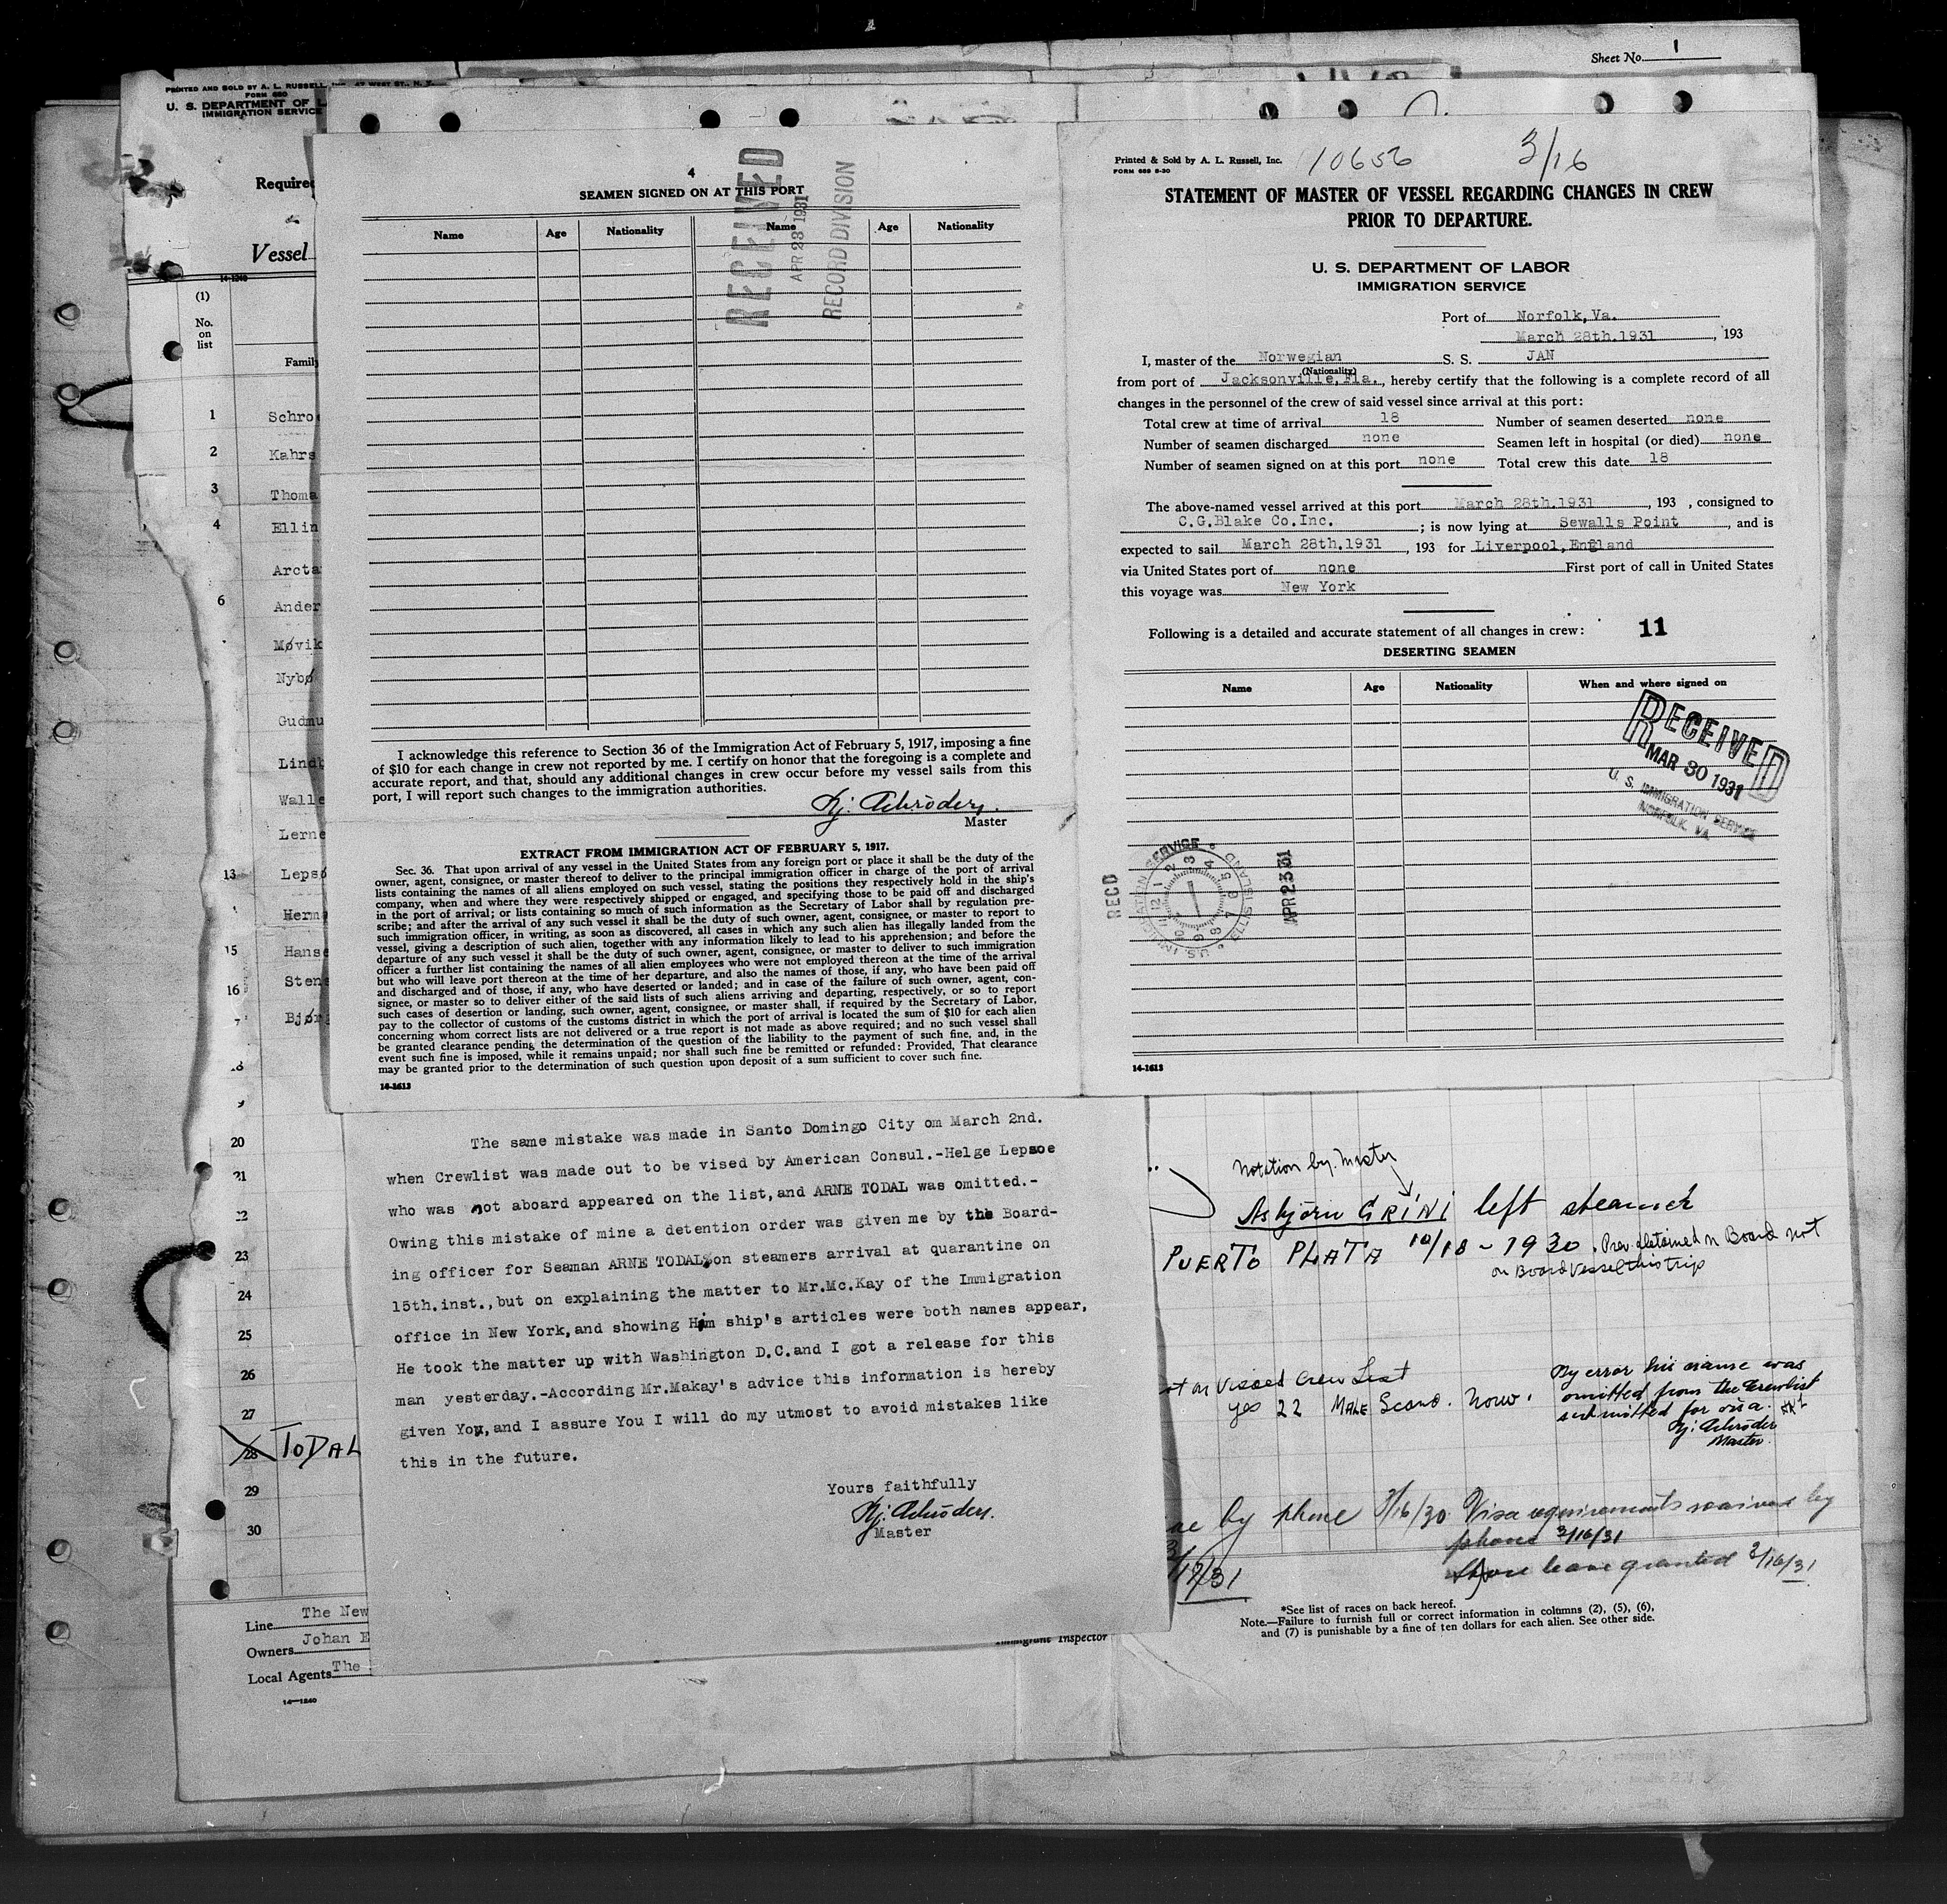 Sheet No. 1
PRINTED AND SOLD BY A. L. RUSSELL
FORM 680
U. S. DEPARTMENT OF L
IMMIGRATION SERVICE
Require
Vessel
14-1240
(1)
No.
on
list
Family
1 Schro
2 Kahrs
3 Thoma
4 Ellin
Arcta
6 Ander
Møvik
Nybø
Gudmu
Lindb
Walle
Lerne
13 Lepsø
Herma
15 Hanse
16 Stene
7 Bjør
18
9
20
21
22
23
24
25
26
27
28 TODAL
29
30
Line The New
Owners Johan E
Local Agents The
14-1240
4
SEAMEN SIGNED ON AT THIS PORT
Name Age Nationality Name Age Nationality
RECEIVED
APR 28 1931
RECORD DIVISION
I acknowledge this reference to Section 36 of the Immigration Act of February 5, 1917, imposing a fine
of $10 for each change in crew not reported by me. I certify on honor that the foregoing is a complete and
accurate report, and that, should any additional changes in crew occur before my vessel sails from this
port, I will report such changes to the immigration authorities.
Kj. Schröder.
Master
EXTRACT FROM IMMIGRATION ACT OF FEBRUARY 5, 1917.
Sec. 36. That upon arrival of any vessel in the United States from any foreign port or place it shall be the duty of the
owner, agent, consignee, or master thereof to deliver to the principal immigration officer in charge of the port of arrival
lists containing the names of all aliens employed on such vessel, stating the positions they respectively hold in the ship's
company, when and where they were respectively shipped or engaged, and specifying those to be paid off and discharged
in the port of arrival; or lists containing so much of such information as the Secretary of Labor shall by regulation pre-
scribe; and after the arrival of any such vessel it shall be the duty of such owner, agent, consignee, or master to report to
such immigration officer, in writing, as soon as discovered, all cases in which any such alien has illegally landed from the
vessel, giving a description of such alien, together with any information likely to lead to his apprehension; and before the
departure of any such vessel it shall be the duty of such owner, agent, consignee, or master to deliver to such immigration
officer a further list containing the names of all alien employees who were not employed thereon at the time of the arrival
but who will leave port thereon at the time of her departure, and also the names of those, if any, who have been paid off
and discharged and of those, if any, who have deserted or landed; and in case of the failure of such owner, agent, con-
signee, or master so to deliver either of the said lists of such aliens arriving and departing, respectively, or so to report
such cases of desertion or landing, such owner, agent, consignee, or master shall, if required by the Secretary of Labor,
pay to the collector of customs of the customs district in which the port of arrival is located the sum of $10 for each alien
concerning whom correct lists are not delivered or a true report is not made as above required; and no such vessel shall
be granted clearance pending the determination of the question of the liability to the payment of such fine, and, in the
event such fine is imposed, while it remains unpaid; nor shall such fine be remitted or refunded: Provided, That clearance
may be granted prior to the determination of such question upon deposit of a sum sufficient to cover such fine.
14-1613
Printed & Sold by A. L. Russell, Inc. 10656 3/16
FORM 689 8-30
STATEMENT OF MASTER OF VESSEL REGARDING CHANGES IN CREW
PRIOR TO DEPARTURE.
U. S. DEPARTMENT OF LABOR
IMMIGRATION SERVICE
Port of Norfolk, Va.
March 28th.1931, 193
I, master of the Norwegian S. S. JAN
(Nationality)
from port of Jacksonville, Fla., hereby certify that the following is a complete record of all
changes in the personnel of the crew of said vessel since arrival at this port:
Total crew at time of arrival 18 Number of seamen deserted none
Number of seamen discharged none Seamen left in hospital (or died) none
Number of seamen signed on at this port none Total crew this date 18
The above-named vessel arrived at this port March 28th.1931, 193 , consigned to
C.G.Blake Co.Inc. ; is now lying at Sewalls Point, and is
expected to sail March 28th.1931, 193 for Liverpool, England
via United States port of none First port of call in United States
this voyage was New York
Following is a detailed and accurate statement of all changes in crew: 11
DESERTING SEAMEN
Name Age Nationality When and where signed on
RECEIVED
MAR 30 1931
U. S. IMMIGRATION SERVICE
NORFOLK, VA.
RECD
U.S. IMMIGRATION SERVICE
ELLIS ISLAND
APR 23 31
14-1613
The same mistake was made in Santo Domingo City om March 2nd.
when Crewlist was made out to be vised by American Consul.-Helge Lepsoe
who was not aboard appeared on the list,and ARNE TODAL was omitted.-
Owing this mistake of mine a detention order was given me by the Board-
ing officer for Seaman ARNE TODAL, on steamers arrival at quarantine on
15th.inst.,but on explaining the matter to Mr.Mc.Kay of the Immigration
office in New York,and showing Him ship's articles were both names appear,
He took the matter up with Washington D.C.and I got a release for this
man yesterday.-According Mr.Makay's advice this information is hereby
given You,and I assure You I will do my utmost to avoid mistakes like
this in the future.
Yours faithfully
Kj. Schröder.
Master
Notation by Master
Asbjörn GRINI left steamer
PUERTO PLATA 10/18 - 1930. Prev. detained on Board not
on Board Vessel this trip
ot on Vissed Crew List
yes 22 MALE Scand. Norw.
By error his name was
omitted from the Crewlist
submitted for visa.
Kj. Schröder
Master.
by phone 3/16/30 Visa requirements waived by
phone 3/16/31
3/17/31
Shore leave granted 3/16/31
*See list of races on back hereof.
Note.—Failure to furnish full or correct information in columns (2), (5), (6),
and (7) is punishable by a fine of ten dollars for each alien. See other side.
Immigrant Inspector